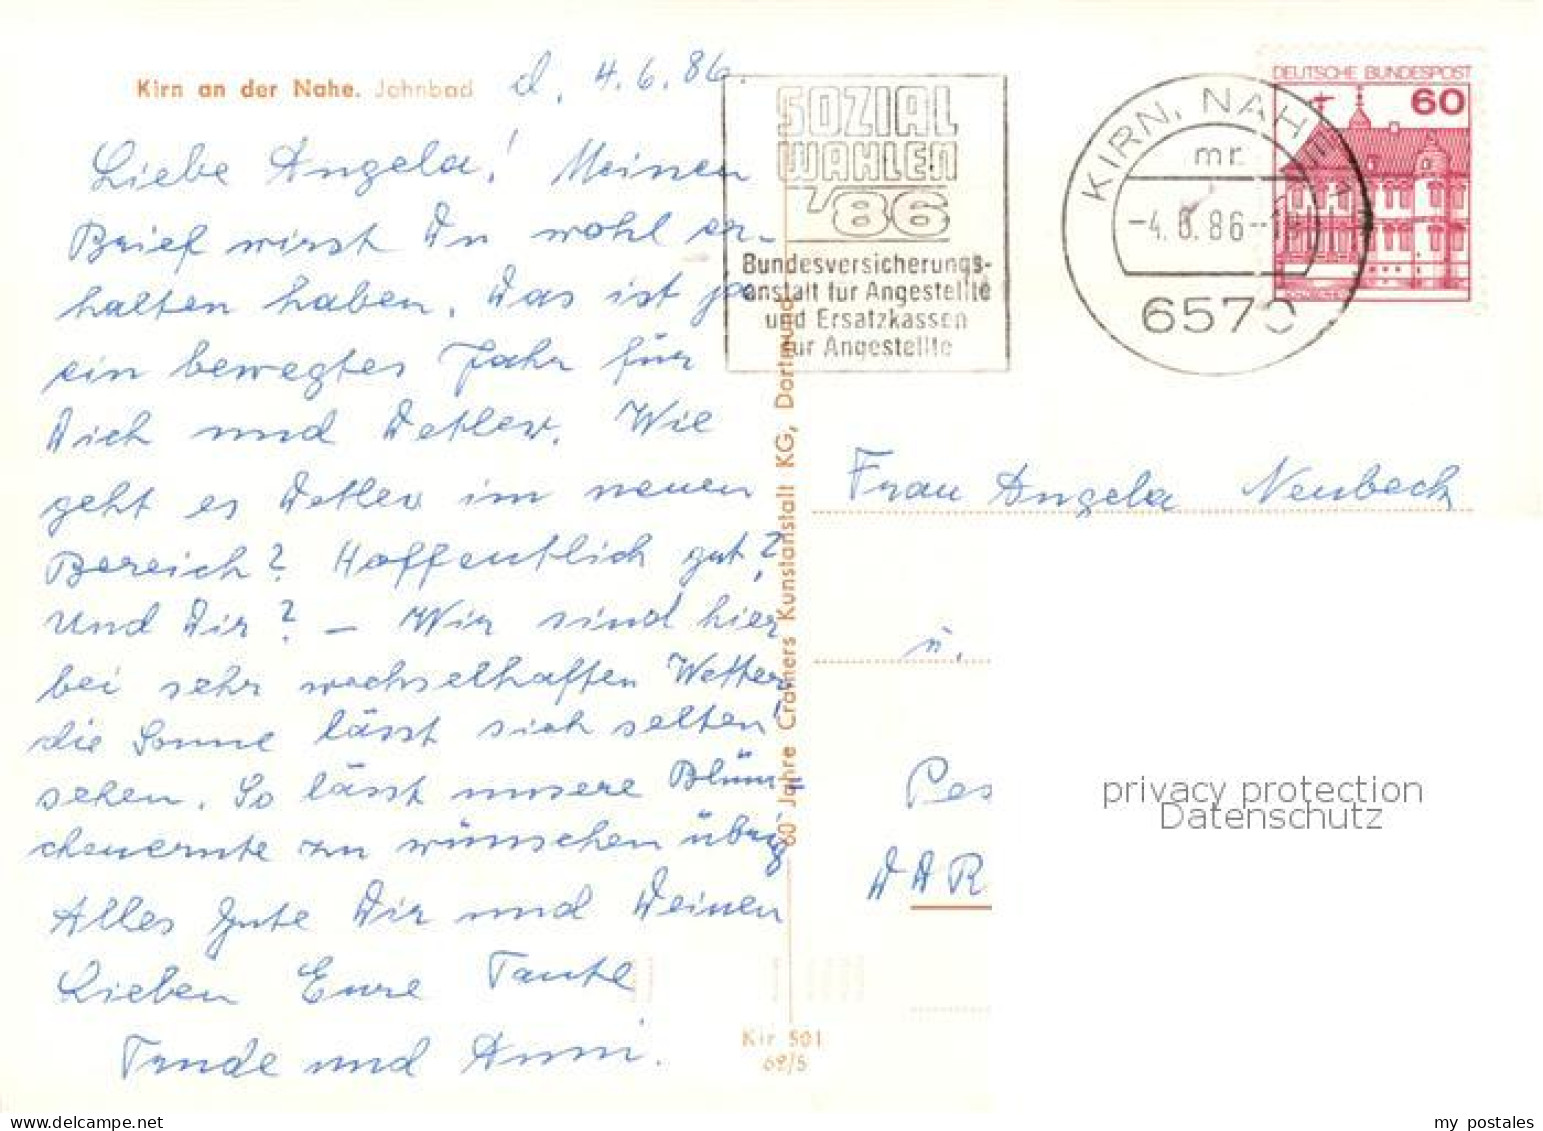 Kirn an der Nahe. Jahnbad
d. 4.6.86.
Liebe Angela! Meinen
Brief wirst Du wohl er-
halten haben. Das ist ja
ein bewegtes Jahr für
Dich und Detlev. Wie
geht es Detlev im neuen
Bereich? Hoffentlich gut?
Und Dir? – Wir sind hier
bei sehr wechselhaften Wetter,
die Sonne lässt sich selten
sehen. So lässt unsere Blüm=
chenernte zu wünschen übrig
Alles Gute Dir und Deinen
Lieben Eure Tante
Trude und Anni.
60 Jahre Cramers Kunstanstalt KG, Dortmund
Kir 501
69/5
SOZIAL
WAHLEN
'86
Bundesversicherungs-
anstalt für Angestellte
und Ersatzkassen
für Angestellte
KIRN, NAHE 1
mr
-4.6.86--18
6570
DEUTSCHE BUNDESPOST
60
Frau Angela Neubeck
u.
Pes
DDR
privacy protection
Datenschutz
my postales